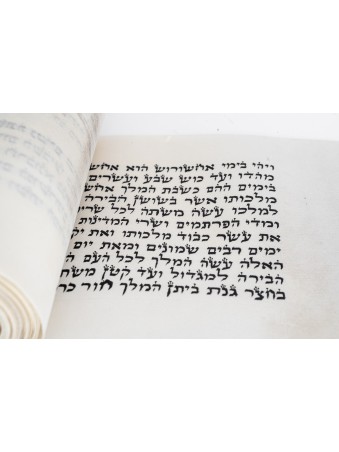 ויהי בימי אחשורוש הוא אחש
מהדו ועד כוש שבע ועשרים
בימים ההם כשבת המלך אחש
מלכותו אשר בשושן הבירה
למלכו עשה משתה לכל שרי
ומדי הפרתמים ושרי המדינות
את עשר כבוד מלכותו ואת יק
ימים רבים שמונים ומאת יום
האלה עשה המלך לכל העם ה
הבירה למגדול ועד קטן משת
בחצר גנת ביתן המלך חור כר